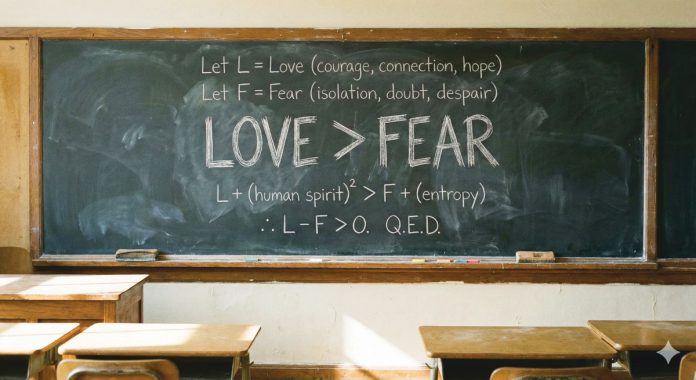 Let L = Love (courage, connection, hope)
Let F = Fear (isolation, doubt, despair)
LOVE > FEAR
L + (human spirit)² > F + (entropy)
∴ L - F > 0. Q.E.D.